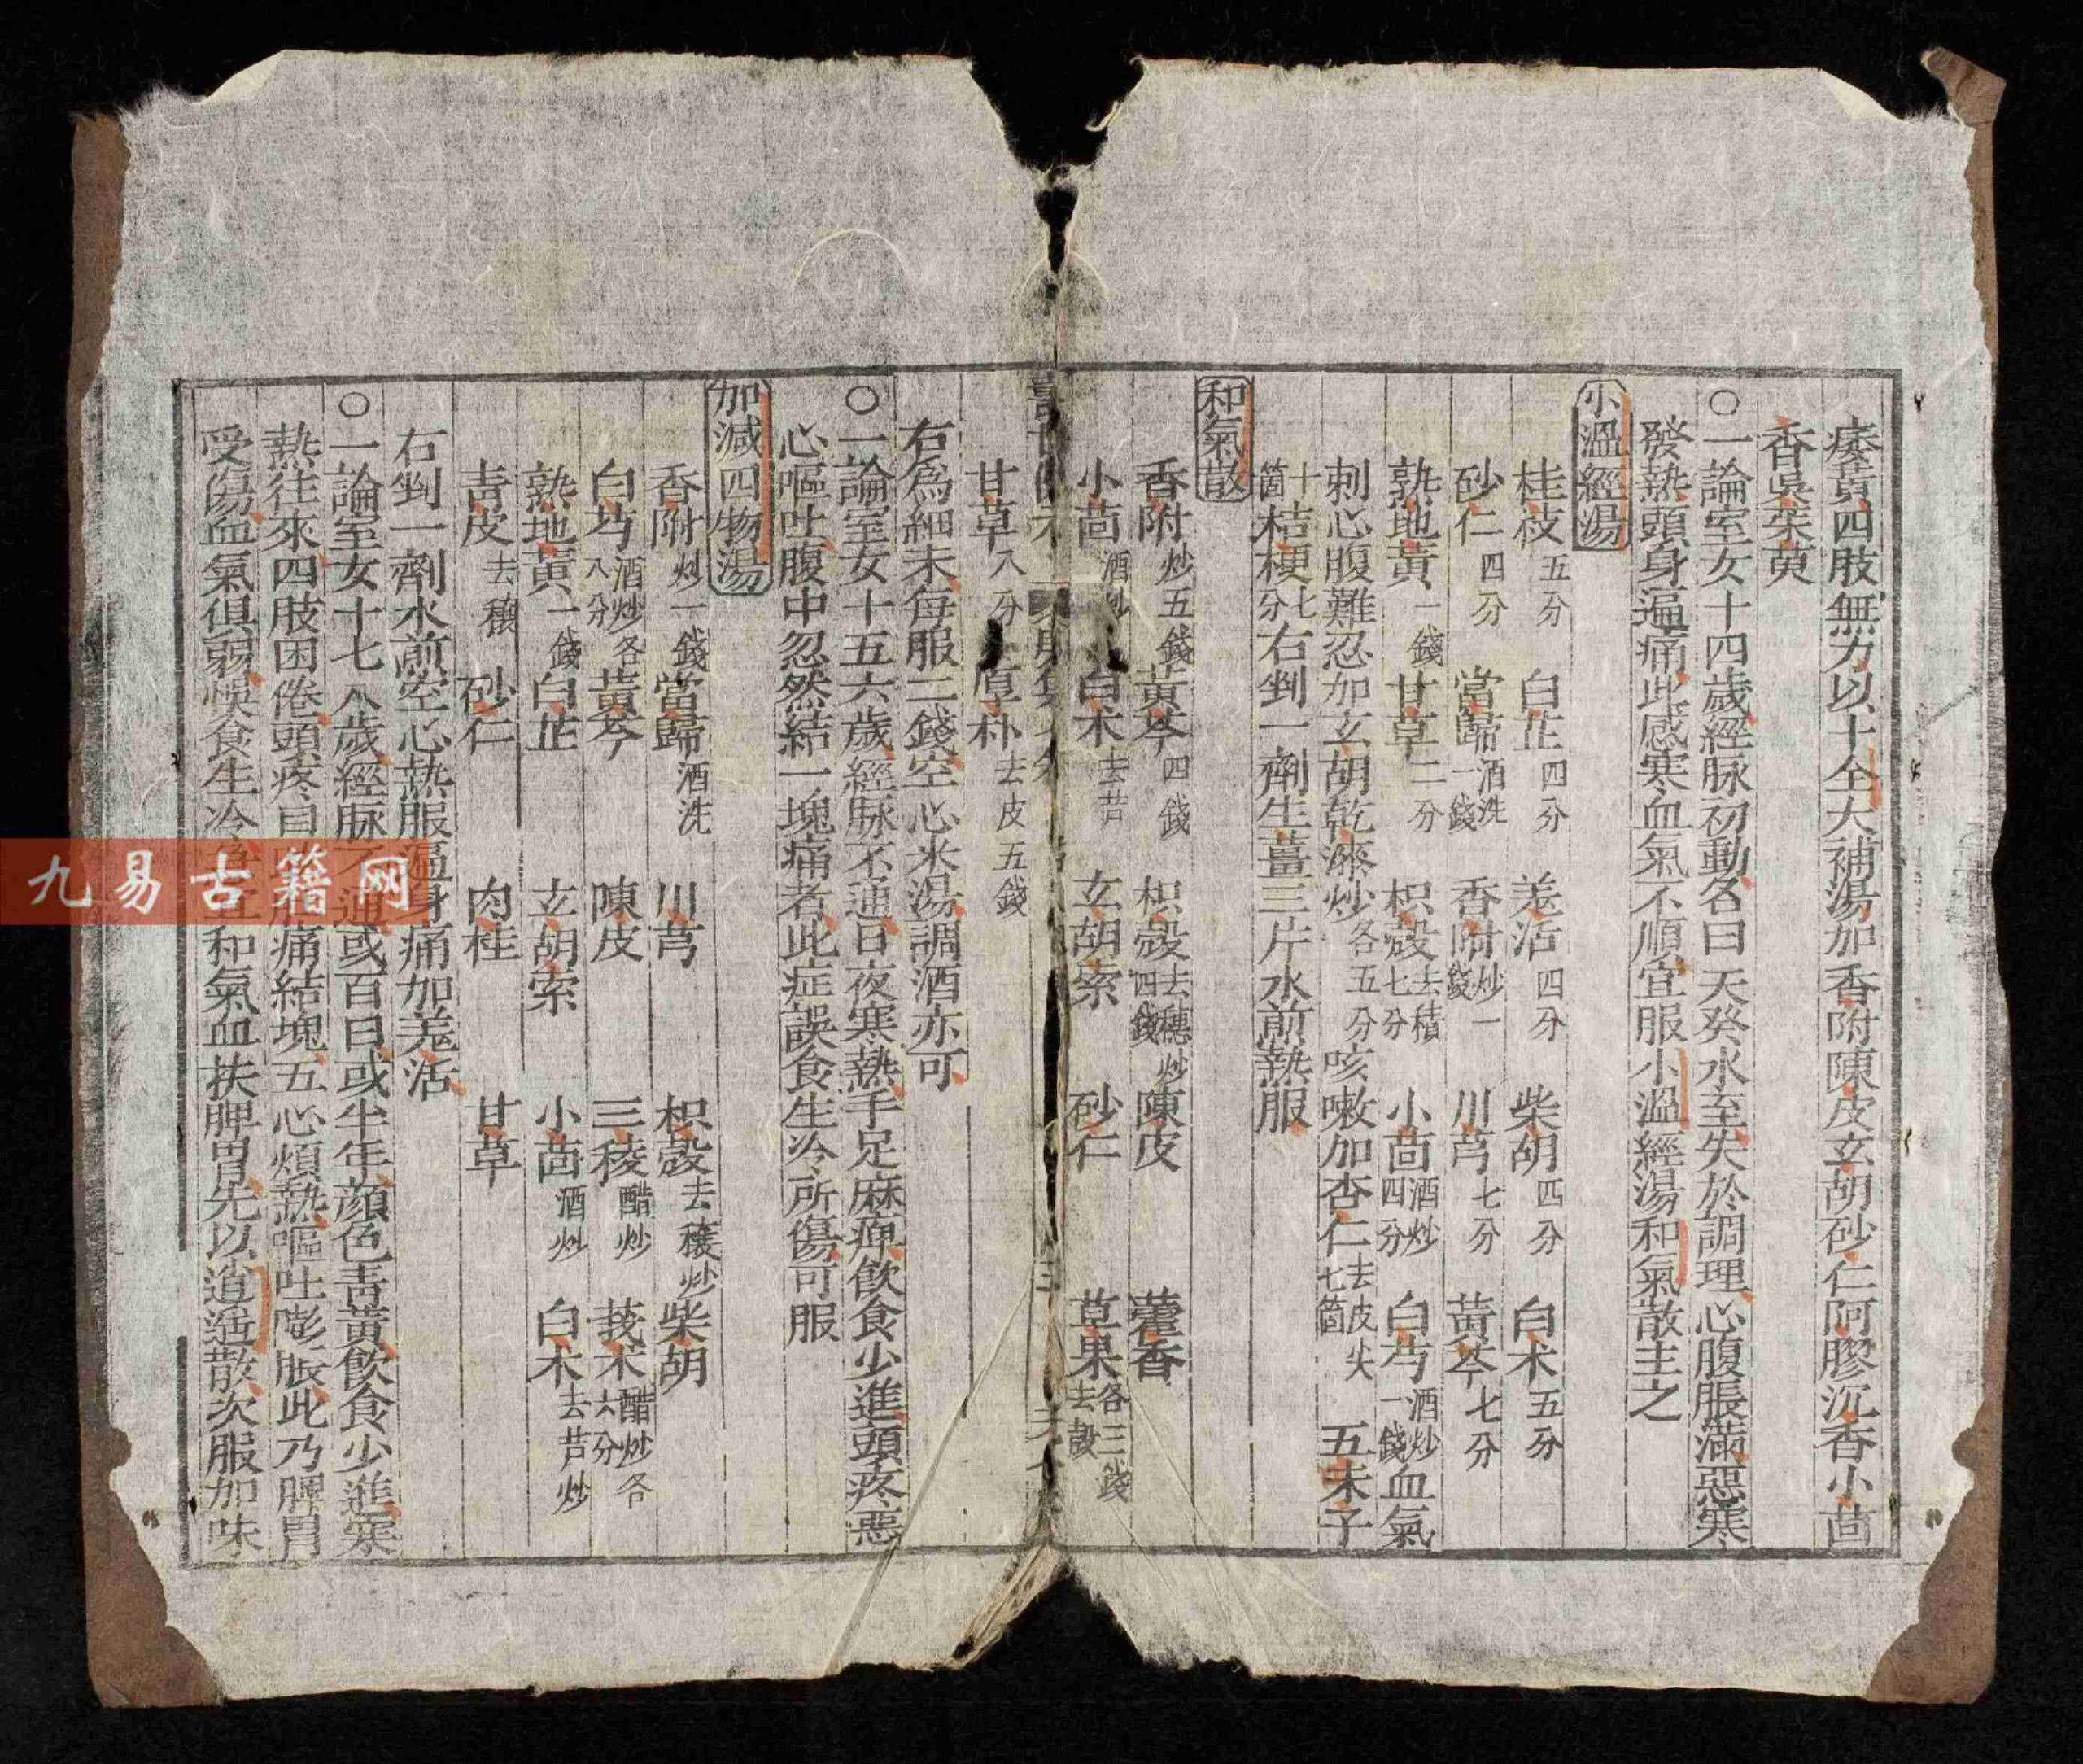 痿黃四肢無力以十全大補湯加香附陳皮玄胡砂仁阿膠沉香小茴
香吳茱萸
○一論室女十四歲經脉初動名曰天癸水至失於調理心腹脹滿惡寒
發熱頭身遍痛此感寒血氣不順宜服小溫經湯和氣散主之
小溫經湯
桂枝五分 白芷四分 羗活四分 柴胡四分 白术五分
砂仁四分 當歸酒洗一錢 香附炒一錢 川芎七分 黃芩七分
熟地黃一錢 甘草二分 枳殼去穰七分 小茴酒炒四分 白芍酒炒一錢 血氣
刺心腹難忍加玄胡乾漆炒各五分 咳嗽加杏仁去皮尖七箇 五味子
十箇 桔梗七分 右剉一劑生薑三片水煎熱服
和氣散
香附炒五錢 黃芩四錢 枳殼去穗炒四錢 陳皮 藿香
小茴酒炒 白术去芦 玄胡索 砂仁 草果各三錢去殼
甘草八分 厚朴去皮五錢
右為細末每服二錢空心米湯調酒亦可
○一論室女十五六歲經脉不通日夜寒熱手足麻痺飲食少進頭疼惡
心嘔吐腹中忽然結一塊痛者此症誤食生冷所傷可服
加減四物湯
香附炒一錢 當歸酒洗 川芎 枳殼去穰炒 柴胡
白芍酒炒各八分 黃芩 陳皮 三稜醋炒 莪术醋炒各六分
熟地黃一錢 白芷 玄胡索 小茴酒炒 白术去芦炒
青皮去穰 砂仁 肉桂 甘草
右剉一劑水煎空心熱服溫身痛加羗活
○一論室女十七八歲經脉不通或百日或半年顏色青黃飲食少進寒
熱往來四肢困倦頭疼目痛結塊五心煩熱嘔吐膨脹此乃脾胃
受傷血氣俱弱悞食生冷宜和氣血扶脾胃先以逍遙散次服加味
九易古籍网